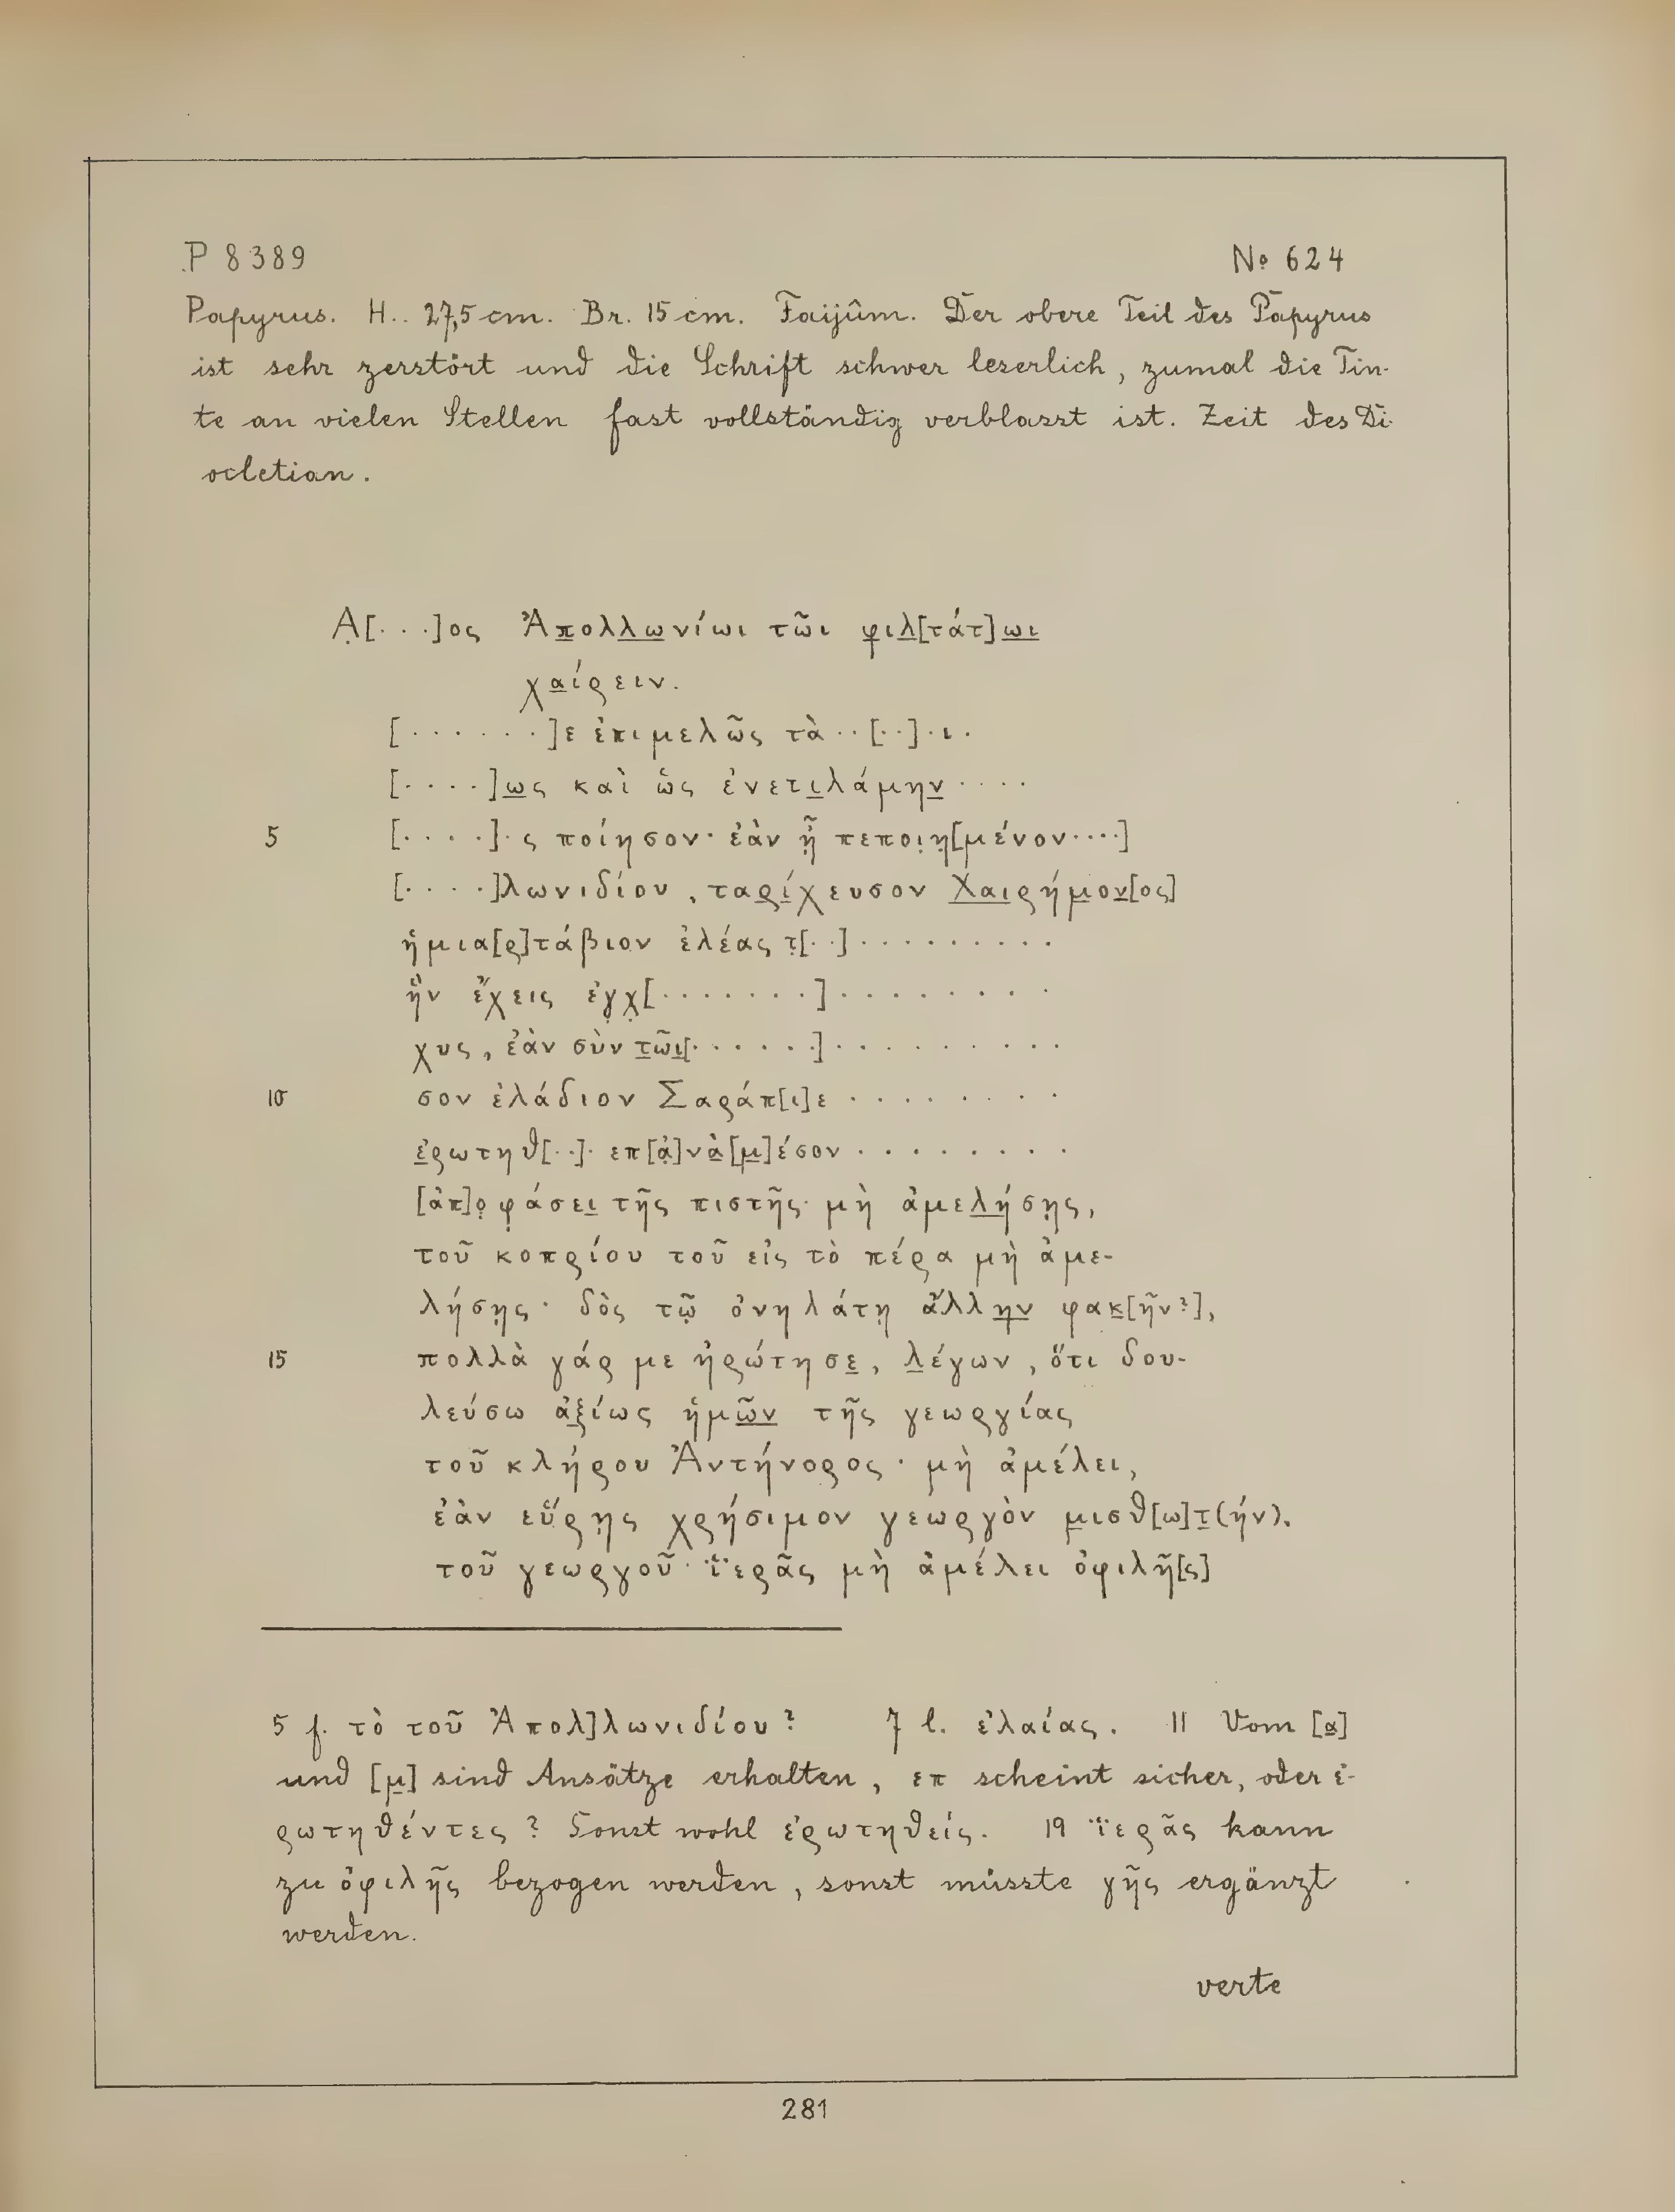 P 8389 № 624
Papyrus. H.. 27,5 cm. Br. 15 cm. Faijûm. Der obere Teil des Papyrus
ist sehr zerstört und die Schrift schwer leserlich, zumal die Tin-
te an vielen Stellen fast vollständig verblasst ist. Zeit des Di-
ocletian.
Α̣[· · ·]ος Ἀπολλωνίωι τῶι φιλ[τάτ]ωι
χαίρειν.
[· · · · · · ·]ε ἐπιμελῶς τὰ · · [· ·] · ι ·
[· · · ·]ως καὶ ὡς ἐνετιλάμην · · · ·
5 [· · · ·] · ς ποίησον· ἐὰν ᾖ̣ πεποι̣η̣[μένον · · · ·]
[· · · ·]λωνιδίου, ταρίχευσον Χαιρήμον[ος]
ἡμια[ρ]τάβιον ἐλέας τ̣[· ·] · · · · · · · · ·
ἣν ἔχεις ἐγ̣χ̣[· · · · · · ·] · · · · · · · · ·
χυς, ἐὰν σὺν τῶι[· · · · · ·] · · · · · · · · ·
10 σον ἐλάδιον Σαράπ[ι]ε · · · · · · · ·
ἐρωτηθ[· ·] · επ[ἀ̣]νὰ[μ]έσον · · · · · · · ·
[ἀπ]ο̣φ̣άσει τῆς πιστῆς· μὴ ἀμελήσῃς,
τοῦ κοπρίου τοῦ εἰς τὸ πέρα μὴ ἀμε-
λήσῃς· δὸς τῷ ὀνηλάτῃ ἄλλην φακ[ῆν?],
15 πολλὰ γάρ με ἠρώτησε, λέγων, ὅτι δου-
λεύσω ἀξίως ἡμῶν τῆς γεωργίας
τοῦ κλήρου Ἀντήνορος· μὴ ἀμέλει,
ἐὰν εὕρῃς χρήσιμον γεωργὸν μισθ[ω]τ(ήν).
τοῦ γεωργοῦ· ἵ̈ερᾶς μὴ ἀμέλει ὀφιλῆ[ς]
5 f. τὸ τοῦ Ἀπολ]λωνιδίου? 7 l. ἐλαίας. 11 Vom [α]
und [μ] sind Ansätze erhalten, επ scheint sicher, oder ἐ-
ρωτηθέντες? Sonst wohl ἐρωτηθείς. 19 ϊερᾶς kann
zu ὀφιλῆς bezogen werden, sonst müsste γῆς ergänzt
werden.
verte
281